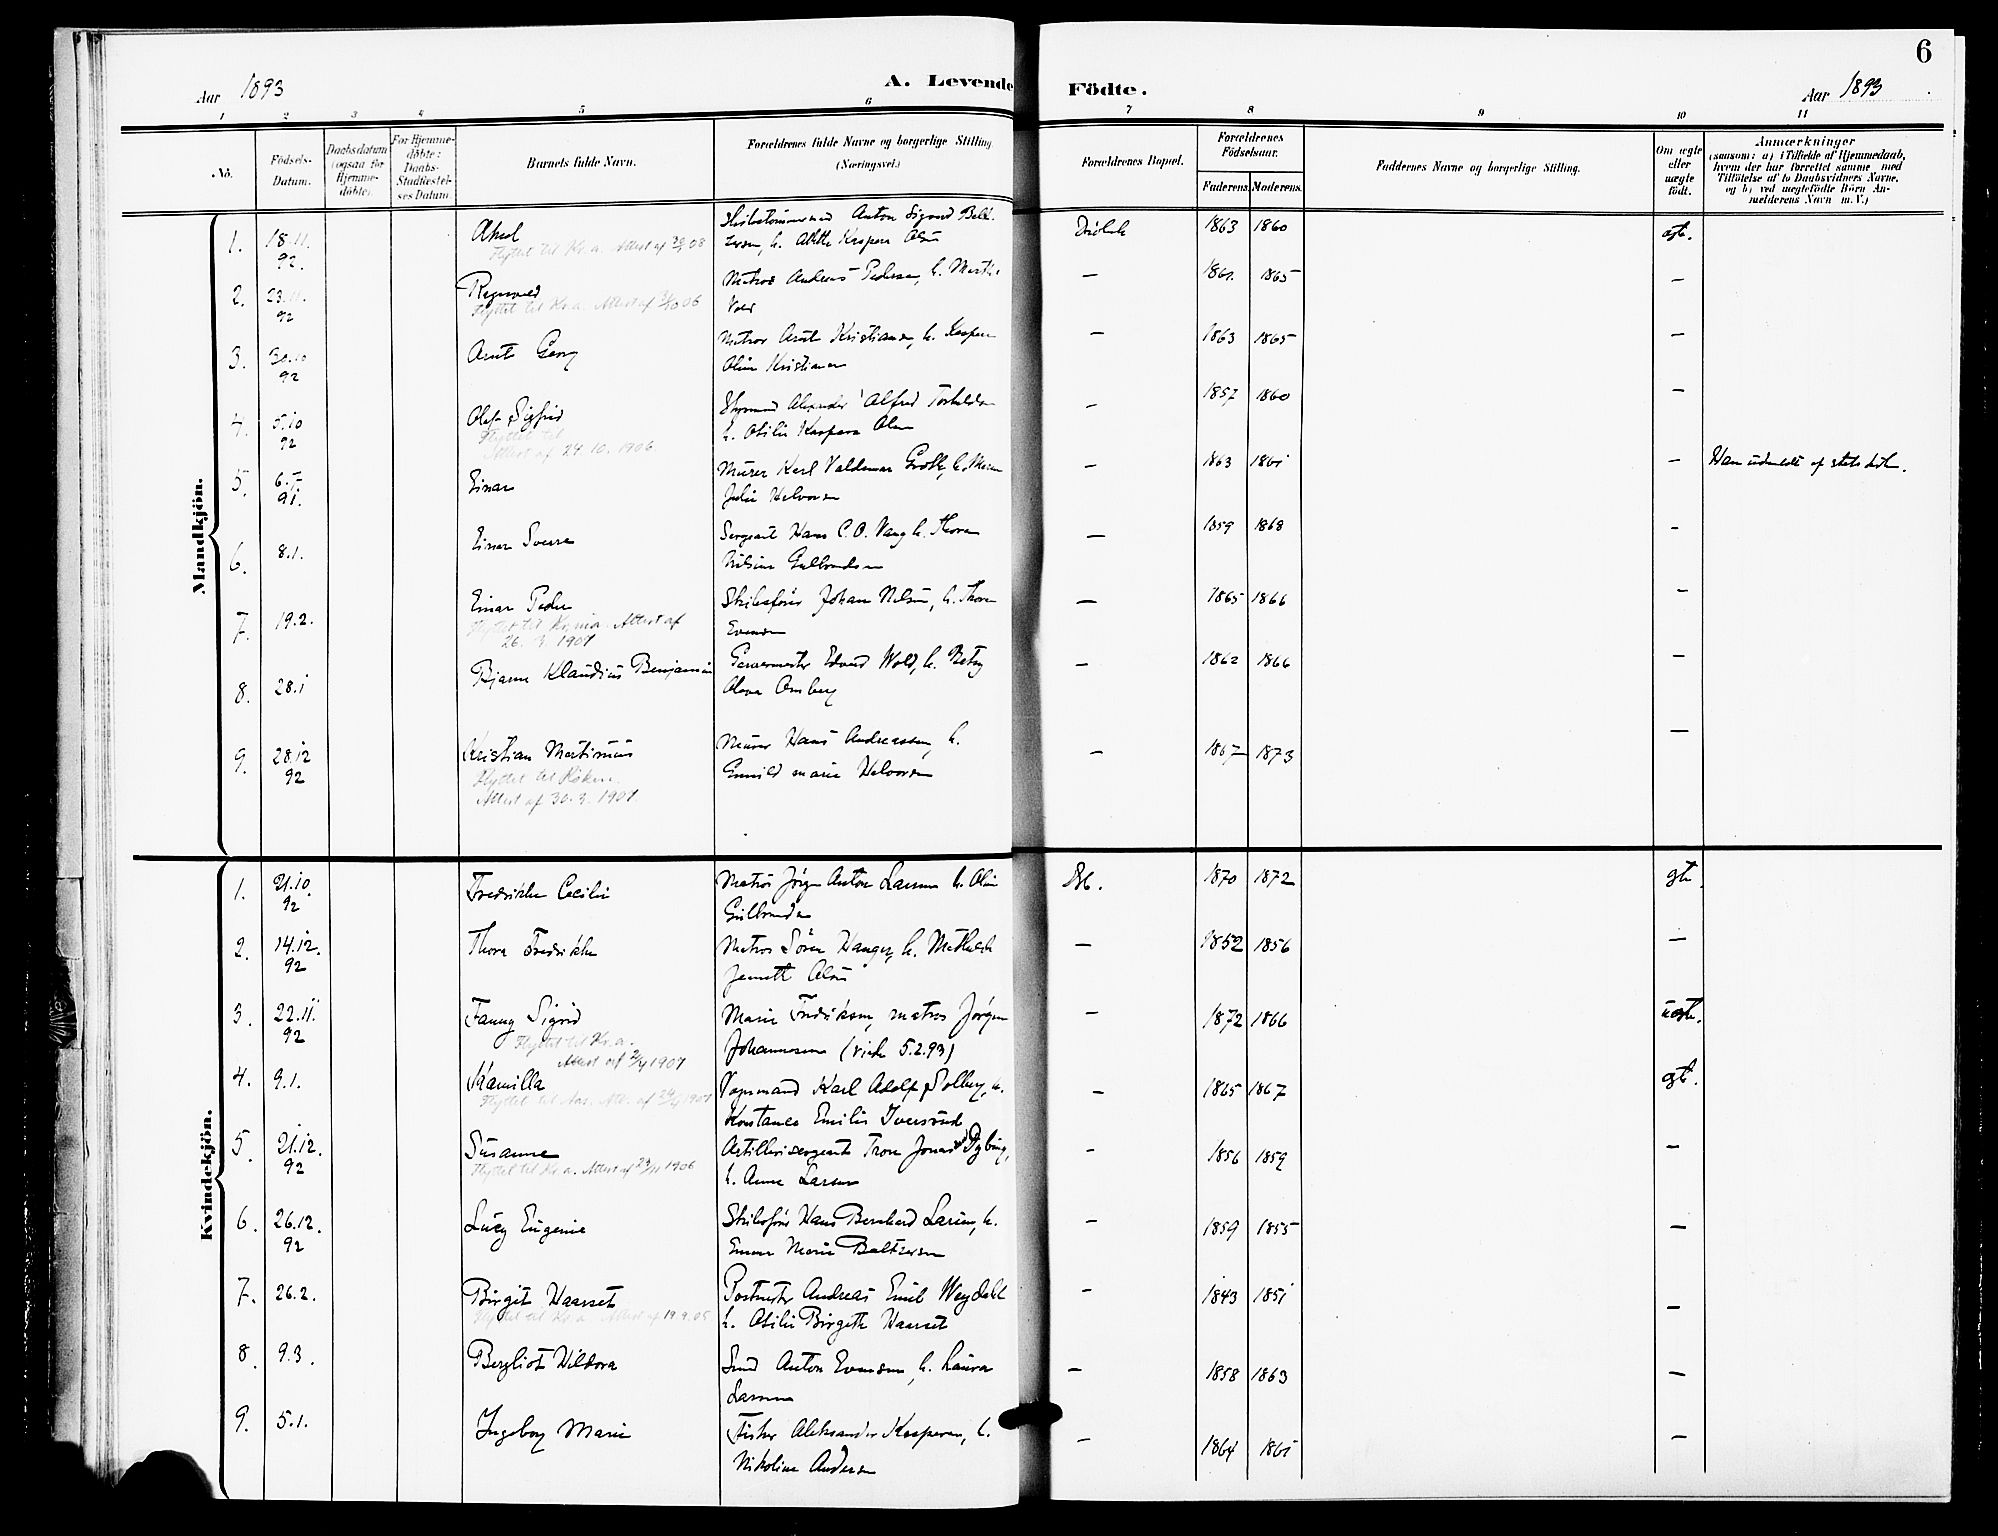 6
Aar 1893
A. Levende Födte.
Aar 1893
1 2 3 4 5 6 7 8 9 10 11
No.
Födsels-Datum.
Daabsdatum (ogsaa for Hjemme-döbte).
For Hjemme-döbte: Daabs-Stadfæstel-ses Datum.
Barnets fulde Navn.
Forældrenes fulde Navne og borgerlige Stilling (Næringsvei.)
Forældrenes Bopæl.
Forældrenes Födselsaar.
Faderens. Moderens.
Faddernes Navne og borgerlige Stilling.
Om ægte eller uægte födt.
Anmærkninger
(saasom: a) i Tilfælde af Hjemmedaab, hvem der har forrettet samme, med Tilföielse af to Daabsvidners Navne, og b) ved uægtefödte Börn An-mælderens Navn m. V.)
Mandkjön.
1. 18.11. 92. Aksel
Anton Sigvard
Kaspara Olsen
1863 1860 egte.
Flyttet til Kr.a. Attest af
2. 23.11. 92 Ragnvald
Matros Andreas Pedersen, h. Martha
— 1865 —
Flyttet til Kr.a. Attest af
3. 30.10 92 Arnt Georg
Matros Arnt Kristiansen, h. Kaspara
Oline Kristiansen
— 1863 1865 —
4. 5.10 92 Olaf Sigfrid
Alexander Alfred
h. Otilie Kaspara Olsen
— 1857 1860 —
Flyttet til
Attest af 24.10.1906.
5. Einar
Murer Karl Valdemar h. Maren
Julie Halvorsen
— 1863 1861 —
Han udmeldt af statskirk.
6. 8.1. Einar Sverre
Sergeant Hans C.O. Vang h. Thora
Nilsine Gulbrandsen
— 1859 1868 —
7. 19.2. Einar Peder
Johan Nilsen, h. Thora
Evensen
— 1865 1866 —
Flyttet til Kr.nia. Attest af
26. 3. 1907
8. 28.1 Bjarne Klaudius Benjamin
Garvermester Edvard Wold, h. Betsy
— 1862 1866 —
9. 28.12 92 Kristian Martinius
Murer Hans Andreassen, h.
Gunild Marie Halvorsen
— 1867 1873 —
Flyttet til Röken.
Attest af 30.3.1907.
Kvindekjön.
1. 21.10. 92 Fredrikke Cecilie
Matros Jörgen Anton Larsen h. Oline
Gulbrandsen
Dbk. 1870 1872 gte.
2. 14.12. 92 Thora Fredrikke
Matros Sören Hanger, h. Mathilde
Jenette Olsen
— 1852 1856 —
3. 22.11. 92 Fanny Sigrid
Marie Fredriksen, matros Jörgen
Johannesen (viede 5.2.93)
— 1872 1866 uegte.
Flyttet til Kr.a.
Attest af 2/4 1907
4. 9.1. Kamilla
Vognmand Karl Adolf Solberg, h.
Konstance Emilie Iversrud
— 1865 1867 gte.
Flyttet til Aas. Att. af 24/4 1907
5. 21.12. 92 Susanne
Artillerisergeant Tron Jonassen Dybing,
h. Anne Larsen
— 1856 1859 —
Flyttet til Kr.a. Attest af 1906
6. 26.12. 92 Lucy Eugenie
Hans Bernhard Larsen, h.
Emma Marie Baltzersen
— 1859 1855 —
7. 26.2. Birgit Haarset
Postmester Andreas Emil Weydahl
h. Otilie Birgitte Haarset
— 1843 1851 —
Flyttet til Kr.a. Attest af 19.9.05
8. 9.3. Bergliot Hildora
Smed Anton Evensen, h. Laura
Larsen
— 1858 1863 —
9. 5.1. Ingeborg Marie
Fisker Aleksander Kaspersen, h.
Nikoline Andersen
— 1864 1861 —